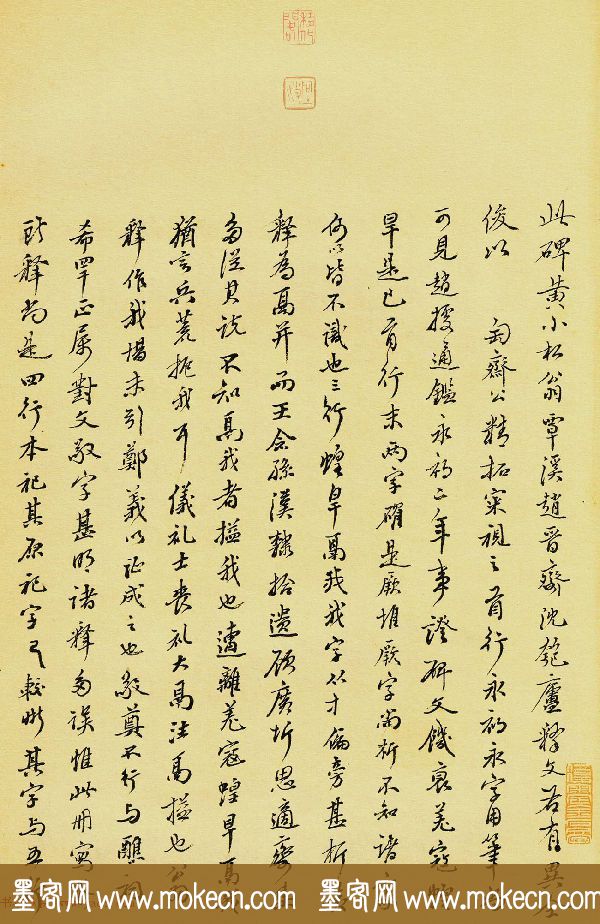 此碑黄小松翁覃溪趙晋齋沈匏廬釋文若有異
後以 匋齋公精拓突視之首行永初永字用筆
可見趙援通鑑永初二年事證碑文饑衰羌寇
旱是已首行末兩字碻是厥堆厥字尚析不知諸
何以皆不識也三行蝗旱鬲我我字从才偏旁甚析
釋為鬲并而王念孫漢隸拾遺顧廣圻思適齋
多從其說不知鬲我者搤我也遭離羌寇蝗旱鬲
猶言兵荒扼我耳儀礼士喪礼大鬲注鬲搤也
釋作我場未引鄭義以证成之也敬奠不行与醮祠
希罕正属對文敬字甚明諸釋多误惟此册
所釋尚是四行本祀其原祀字已較晰其字与五
墨客网 www.mokecn.com 墨客网 www.mokecn.com